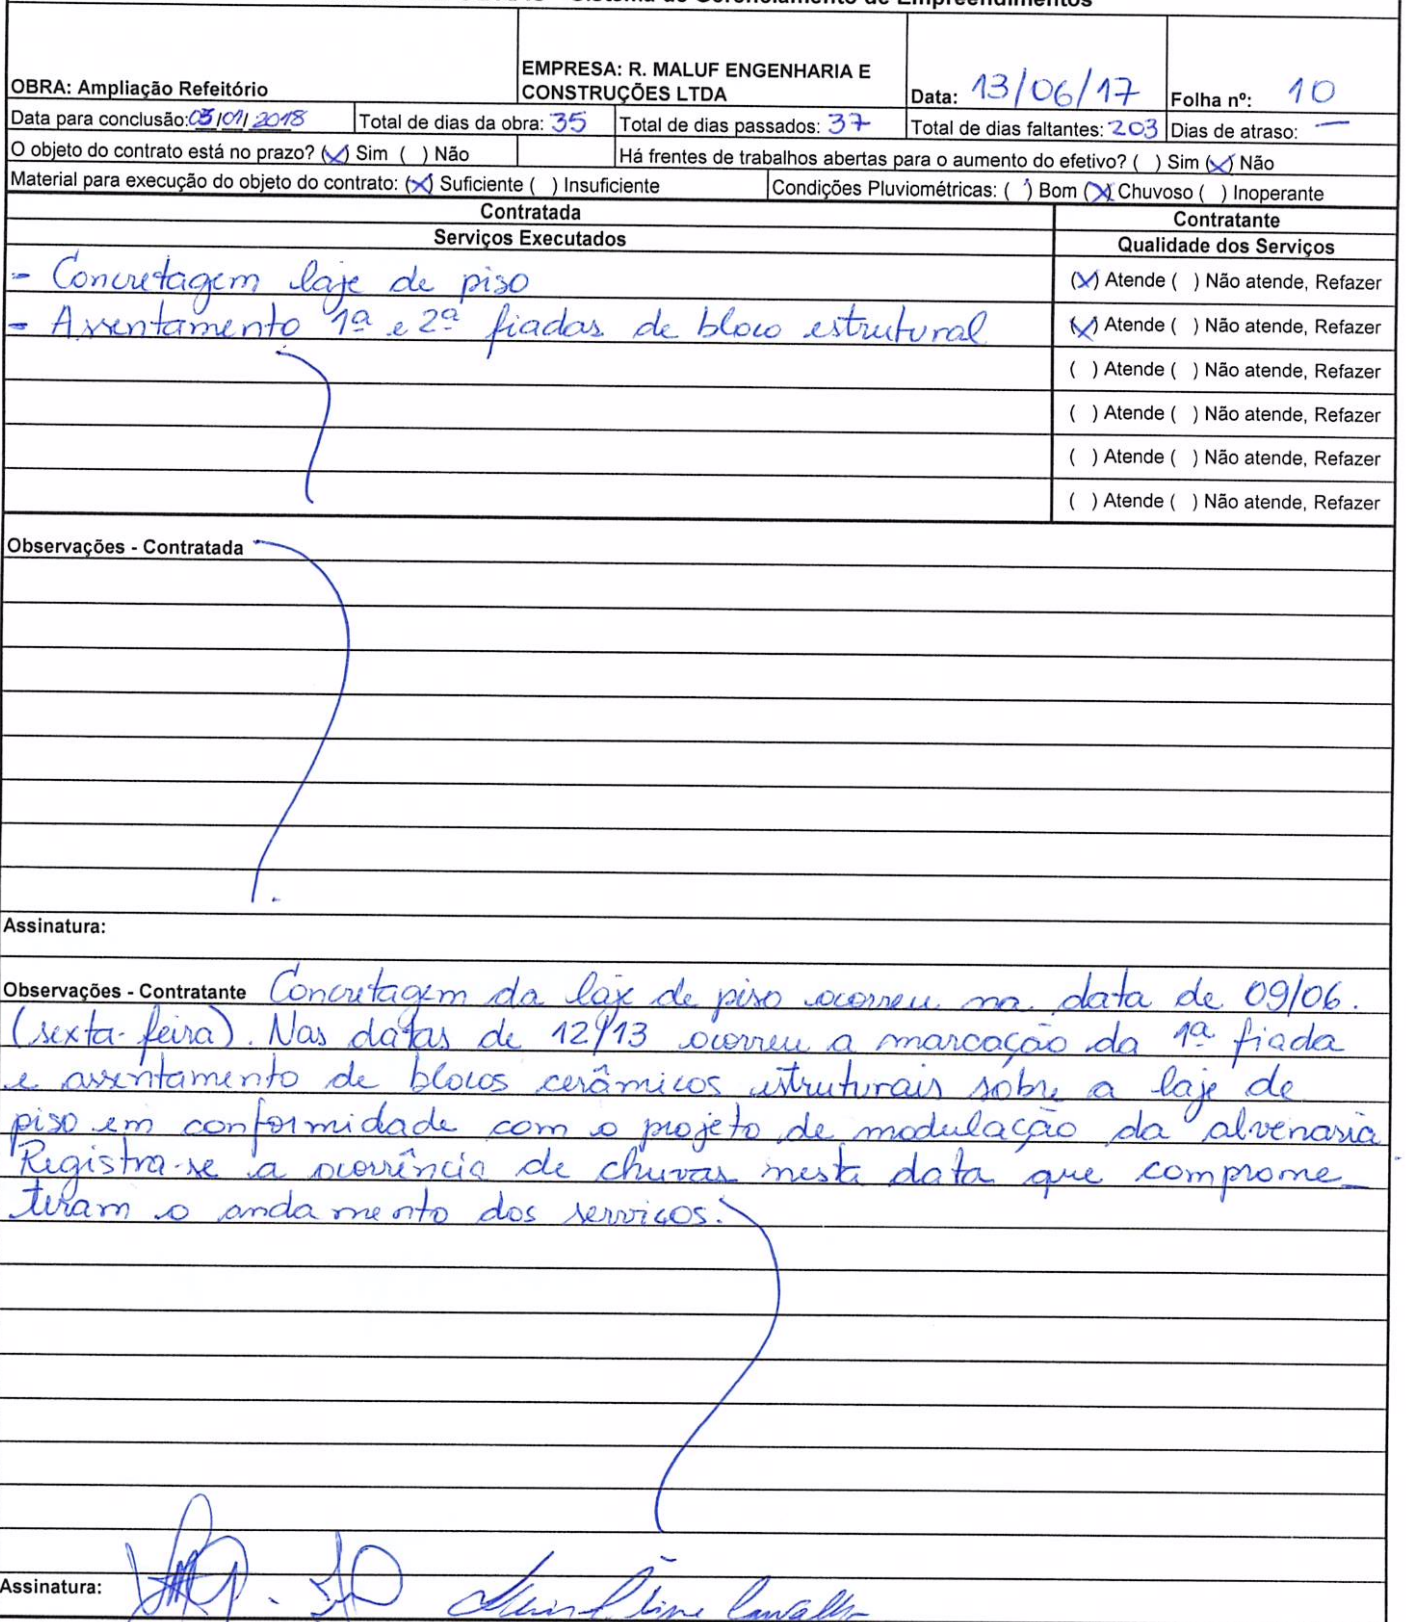 Sistema de Gerenciamento de Empreendimentos
OBRA: Ampliação Refeitório
EMPRESA: R. MALUF ENGENHARIA E
CONSTRUÇÕES LTDA
Data: 13/06/17
Folha nº: 10
Data para conclusão: 03/01/2018
Total de dias da obra: 35
Total de dias passados: 37
Total de dias faltantes: 203
Dias de atraso: —
O objeto do contrato está no prazo? (x) Sim ( ) Não
Há frentes de trabalhos abertas para o aumento do efetivo? ( ) Sim (x) Não
Material para execução do objeto do contrato: (x) Suficiente ( ) Insuficiente
Condições Pluviométricas: ( ) Bom (x) Chuvoso ( ) Inoperante
Contratada
Contratante
Serviços Executados
Qualidade dos Serviços
- Concretagem laje de piso
(x) Atende ( ) Não atende, Refazer
- Assentamento 1ª e 2ª fiadas de bloco estrutural
(x) Atende ( ) Não atende, Refazer
( ) Atende ( ) Não atende, Refazer
( ) Atende ( ) Não atende, Refazer
( ) Atende ( ) Não atende, Refazer
( ) Atende ( ) Não atende, Refazer
Observações - Contratada
Assinatura:
Observações - Contratante Concretagem da laje de piso ocorreu na data de 09/06.
(sexta-feira). Nas datas de 12/13 ocorreu a marcação da 1ª fiada
e assentamento de blocos cerâmicos estruturais sobre a laje de
piso em conformidade com o projeto de modulação da alvenaria
Registra-se a ocorrência de chuvas nesta data que comprome_
teram o andamento dos serviços.
Assinatura: